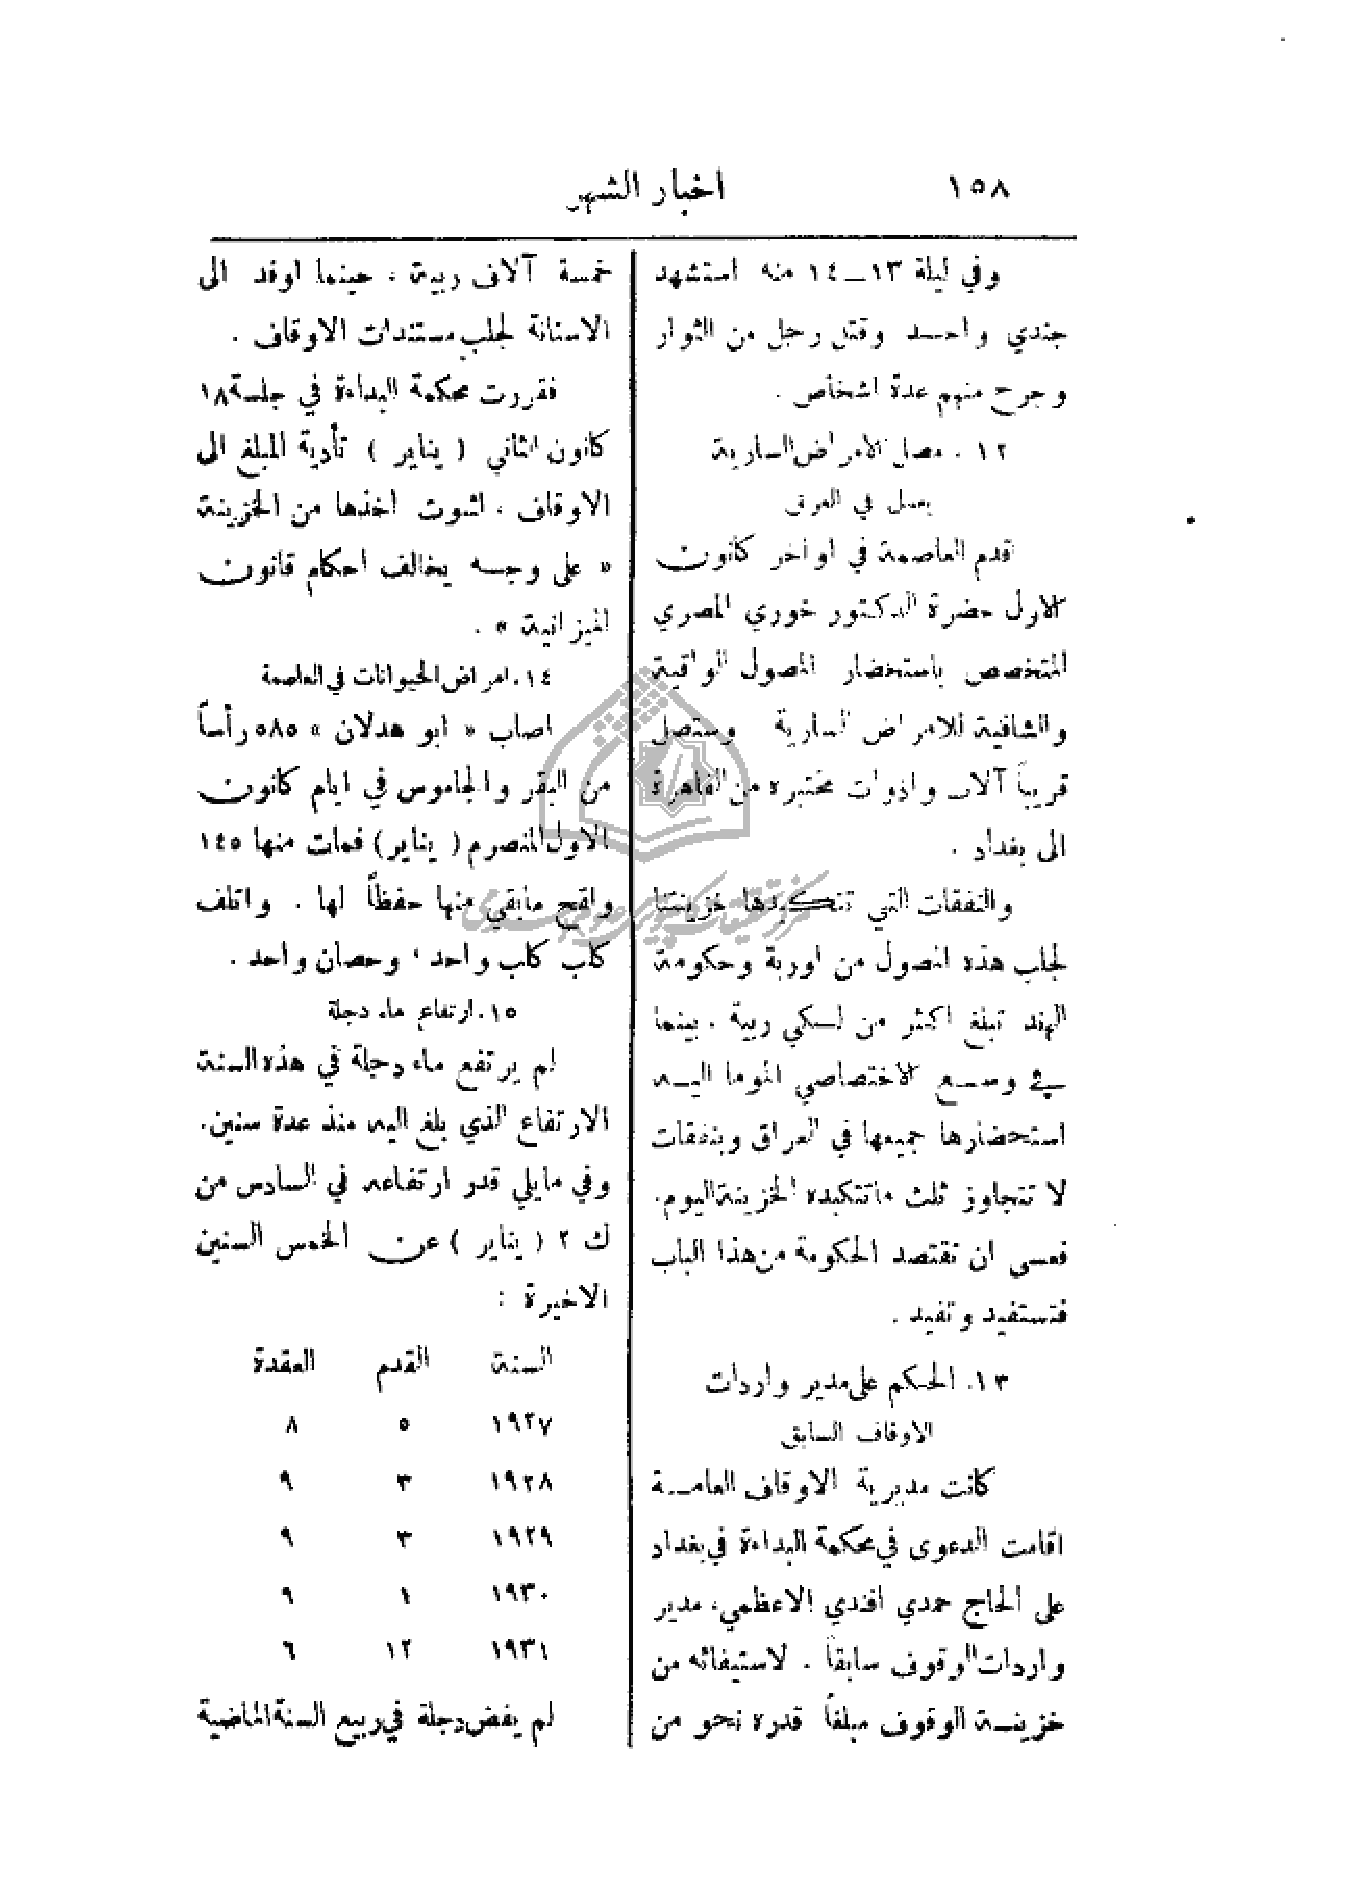 ١٥٨ اخبار الشهر
وفي ليلة ١٣ــ١٤ منه استشهد
جندي واحد وقتل رجل من الثوار
وجرح منهم عدة اشخاص .
١٢ . مصل الامراض السارية
يعمل في العراق
قدم العاصمة في اواخر كانون
الاول حضرة الدكتور خوري المصري
المتخصص باستحضار المصول الواقية
والشافية للامراض السارية وستصل
قريباً آلات وادوات مختبره من القاهرة
الى بغداد .
والنفقات التي تتكبدها خزينتنا
لجلب هذه المصول من اوربة وحكومة
الهند تبلغ اكثر من لكي ربية . بينما
في وسع الاختصاصي الموما اليه
استحضارها جميعها في العراق وبنفقات
لا تتجاوز ثلث ماتتكبده الخزينة اليوم.
فعسى ان تقتصد الحكومة من هذا الباب
فتستفيد وتفيد .
١٣. الحكم على مدير واردات
الاوقاف السابق
كانت مديرية الاوقاف العامة
اقامت الدعوى في محكمة البداءة في بغداد
على الحاج حمدي افندي الاعظمي، مدير
واردات الوقوف سابقاً . لاستيفائه من
خزينة الوقوف مبلغاً قدره نحو من
خمسة آلاف ربية ، حينما اوفد الى
الاستانة لجلب مستندات الاوقاف .
فقررت محكمة البداءة في جلسة ١٨
كانون الثاني ( يناير ) تأدية المبلغ الى
الاوقاف ، لثبوت اخذها من الخزينة
« على وجه يخالف احكام قانون
الميزانية » .
١٤. امراض الحيوانات في العاصمة
اصاب « ابو هدلان » ٥٨٥ رأساً
من البقر والجاموس في ايام كانون
الاول المنصرم ( يناير) فمات منها ١٤٥
والقح مابقي منها حفظاً لها . واتلف
كلب كلب واحد ، وحصان واحد .
١٥. ارتفاع ماء دجلة
لم يرتفع ماء دجلة في هذه السنة
الارتفاع الذي بلغ اليه منذ عدة سنين.
وفي مايلي قدر ارتفاعه في السادس من
ك ٢ ( يناير ) عن الخمس السنين
الاخيرة :
السنة القدم العقدة
١٩٢٧ ٥ ٨
١٩٢٨ ٣ ٩
١٩٢٩ ٣ ٩
١٩٣٠ ١ ٩
١٩٣١ ١٢ ٦
لم يفض دجلة في ربيع السنة الماضية